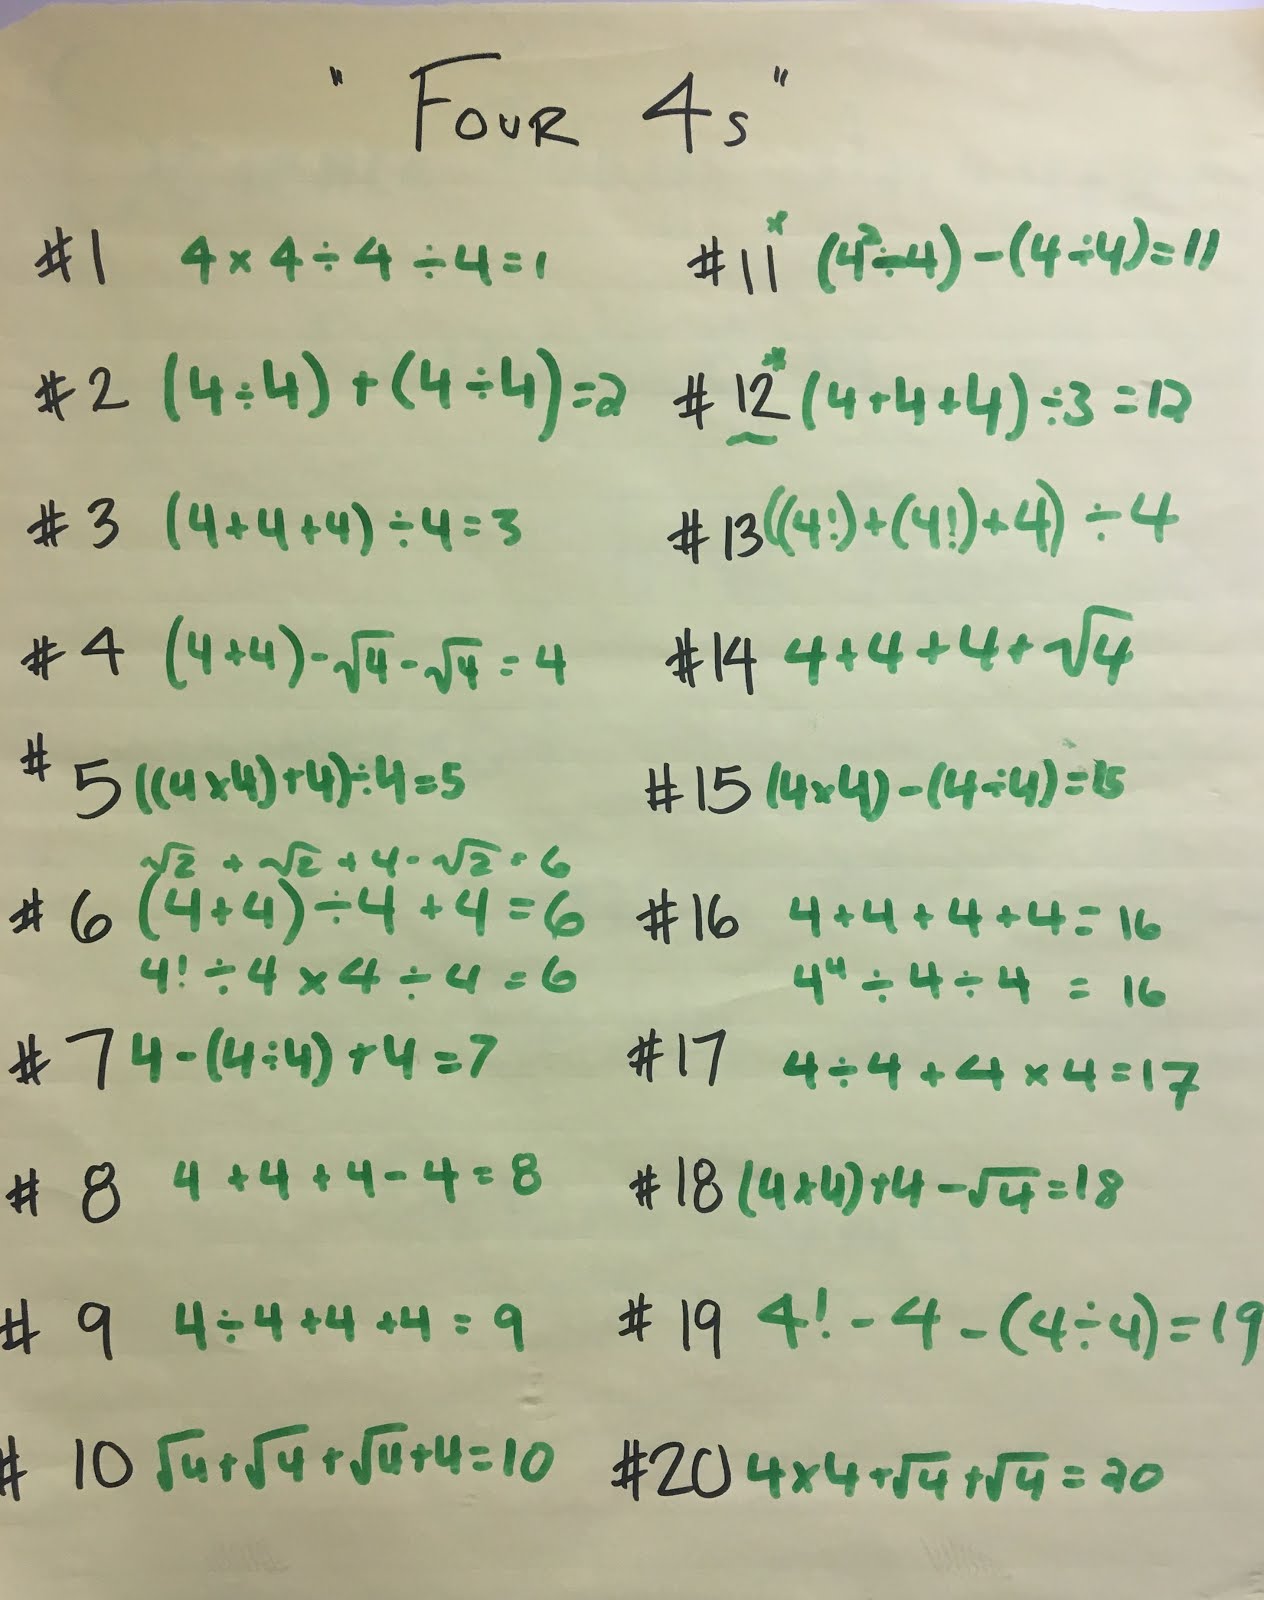 "Four 4s"
#1 4 × 4 ÷ 4 ÷ 4 = 1
#2 (4 ÷ 4) + (4 ÷ 4) = 2
#3 (4 + 4 + 4) ÷ 4 = 3
#4 (4 + 4) - √4 - √4 = 4
#5 ((4 × 4) + 4) ÷ 4 = 5
√2 + √2 + 4 - √2 = 6
#6 (4 + 4) ÷ 4 + 4 = 6
4! ÷ 4 × 4 ÷ 4 = 6
#7 4 - (4 ÷ 4) + 4 = 7
#8 4 + 4 + 4 - 4 = 8
#9 4 ÷ 4 + 4 + 4 = 9
#10 √4 + √4 + √4 + 4 = 10
#11* (4² ÷ 4) - (4 ÷ 4) = 11
#12* (4 + 4 + 4) ÷ 3 = 12
#13 ((4!) + (4!) + 4) ÷ 4
#14 4 + 4 + 4 + √4
#15 (4 × 4) - (4 ÷ 4) = 15
#16 4 + 4 + 4 + 4 = 16
4⁴ ÷ 4 ÷ 4 = 16
#17 4 ÷ 4 + 4 × 4 = 17
#18 (4 × 4) + 4 - √4 = 18
#19 4! - 4 - (4 ÷ 4) = 19
#20 4 × 4 + √4 + √4 = 20